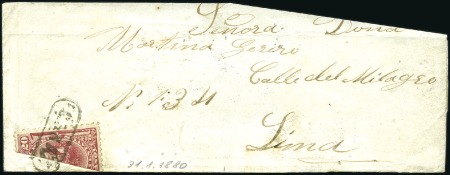 Señora Dona
Martina Geriro
Calle del Milagro
Nº 134
Lima
31.1.1880